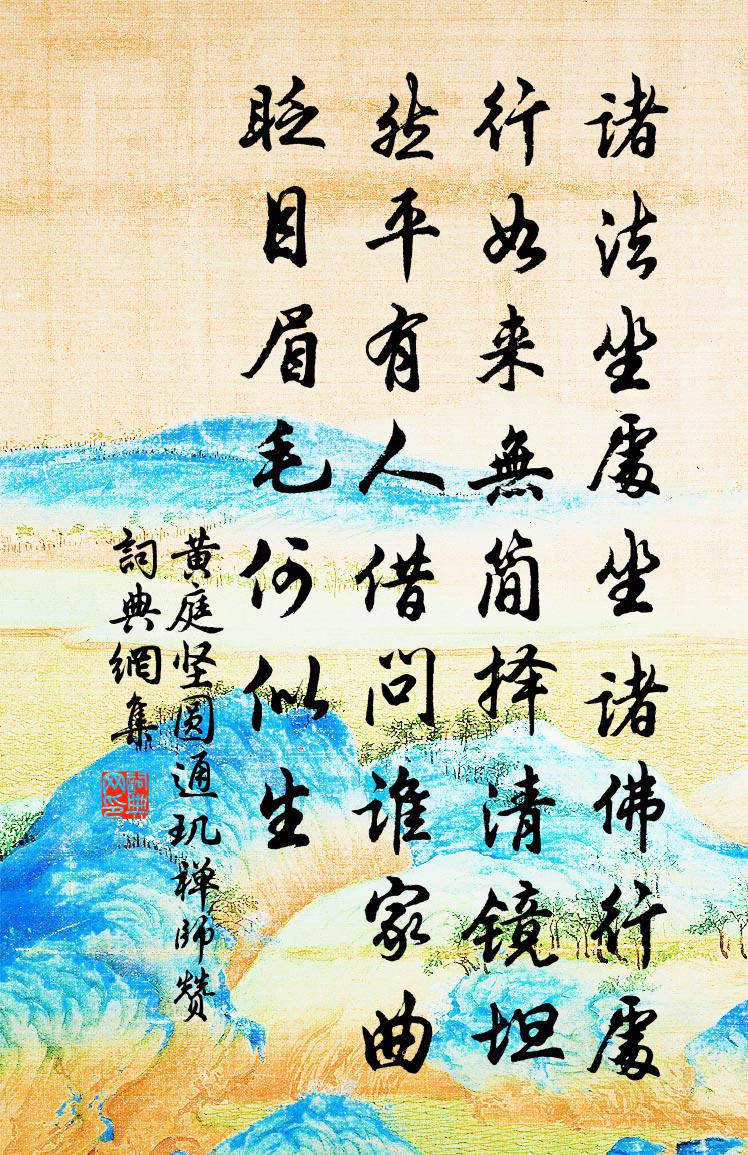 諸法坐處坐諸佛行處
行如来無简择清镜坦
然平有人借问誰家曲
眨目眉毛何似生
黄庭坚圆通玑禅师赞
詞典網集